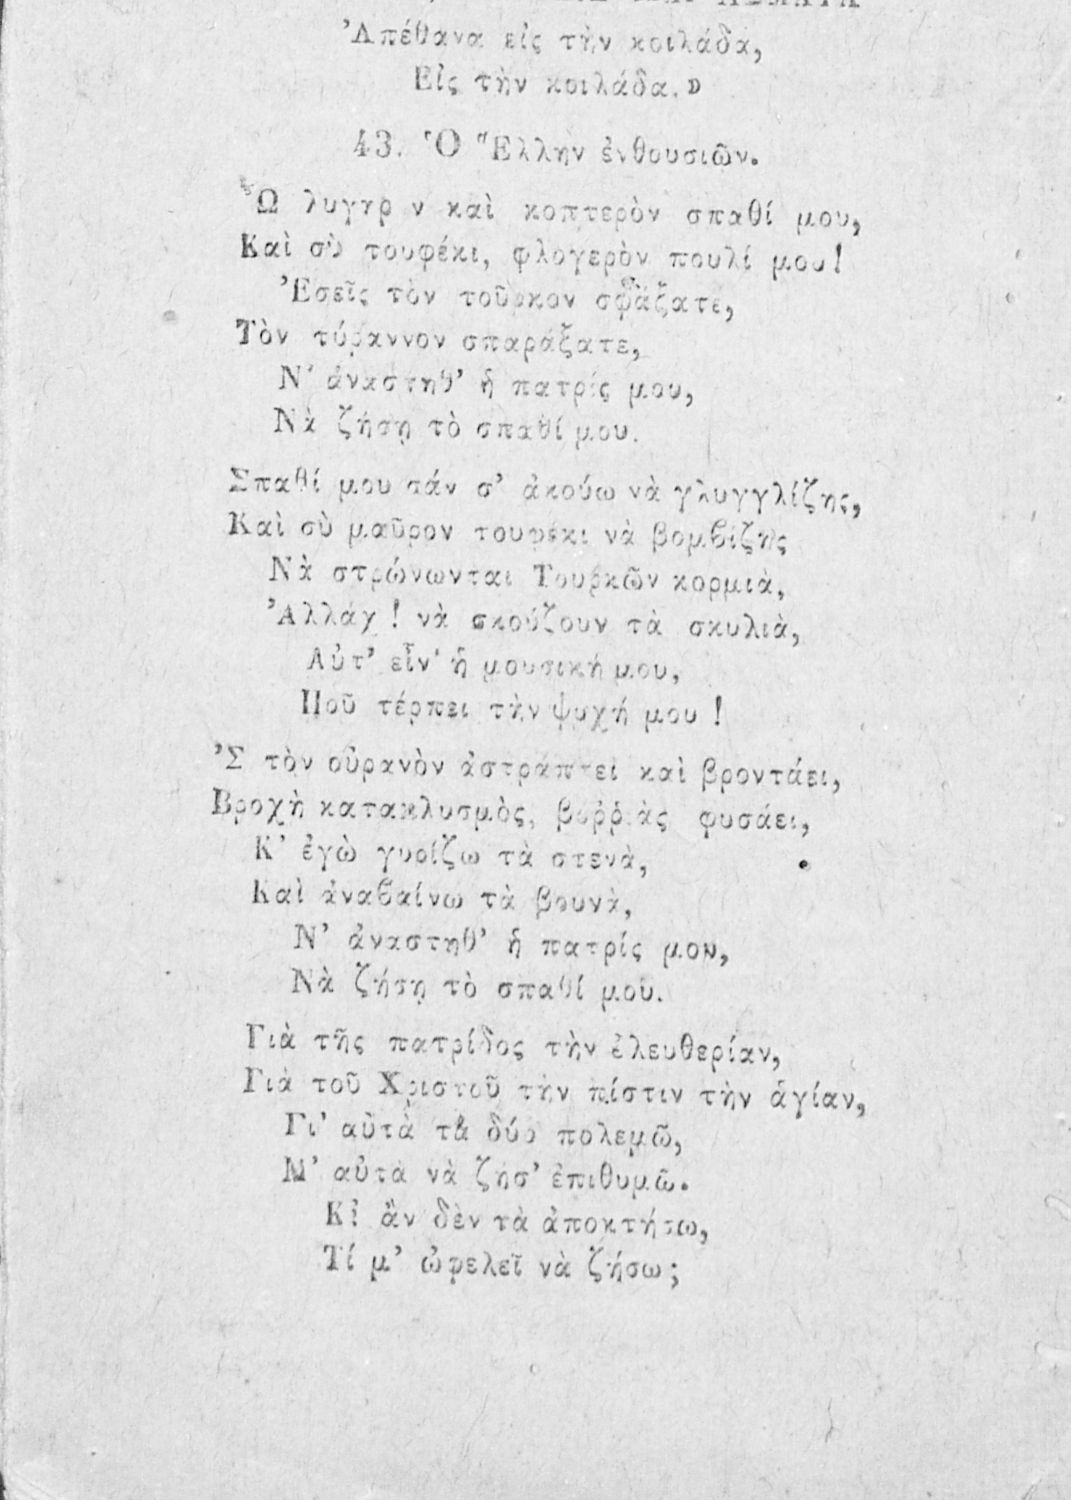 Ἀπέθανα εἰς τὴν κοιλάδα,
Εἰς τὴν κοιλάδα.»
43. Ὁ Ἕλλην ἐνθουσιῶν.
Ὦ λυγηρὸν καὶ κοπτερὸν σπαθί μου,
Καὶ σὺ τουφέκι, φλογερὸν πουλί μου!
Ἐσεῖς τὸν τοῦρκον σφάξατε,
Τὸν τύραννον σπαράξατε,
Ν' ἀναστηθ' ἡ πατρίς μου,
Νὰ ζήσῃ τὸ σπαθί μου.
Σπαθί μου σάν σ' ἀκούω νὰ γλυγγλίζῃς,
Καὶ σὺ μαῦρον τουφέκι νὰ βομβίζῃς
Νὰ στρώνωνται Τουρκῶν κορμιὰ,
Ἀλλάχ! νὰ σκούζουν τὰ σκυλιὰ,
Αὐτ' εἶν' ἡ μουσική μου,
Ποῦ τέρπει τὴν ψυχή μου!
Ἐς τὸν οὐρανὸν ἀστράπτει καὶ βροντάει,
Βροχὴ κατακλυσμὸς, βοῤῥιὰς φυσάει,
Κ' ἐγὼ γυρίζω τὰ στενὰ,
Καὶ ἀναβαίνω τὰ βουνὰ,
Ν' ἀναστηθ' ἡ πατρίς μου,
Νὰ ζήσῃ τὸ σπαθί μου.
Γιὰ τῆς πατρίδος τὴν ἐλευθερίαν,
Γιὰ τοῦ Χριστοῦ τὴν πίστιν τὴν ἁγίαν,
Γι' αὐτὰ τὰ δύο πολεμῶ,
Μ' αὐτὰ νὰ ζήσ' ἐπιθυμῶ.
Κἰ ἂν δὲν τὰ ἀποκτήσω,
Τί μ' ὠφελεῖ νὰ ζήσω;